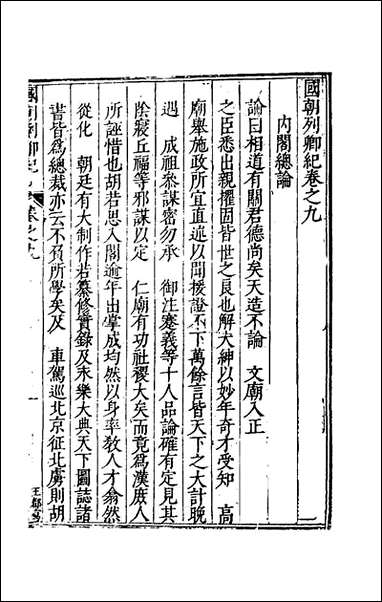 國朝列卿紀卷之九
內閣總論
論曰相道有關君德尚矣天造不論 文廟入正
之臣悉出親擢固皆世之良也解大紳以妙年奇才受知 高
廟舉施政所宜直述以聞援證不下萬餘言皆天下之大計晚
遇 成祖參謀密勿承 御注蹇義等十人品論確有定見其
陰寢丘福等邪謀以定 仁廟有功社稷大矣而竟爲漢庶人
所誣惜也胡若思入閣逾年出掌成均然以身率敎人才翕然
從化 朝廷有大制作若纂修實錄及永樂大典天下圖誌諸
書皆爲總裁亦云不負所學矣及 車駕巡北京征北虜則胡
國朝列卿紀 卷之九